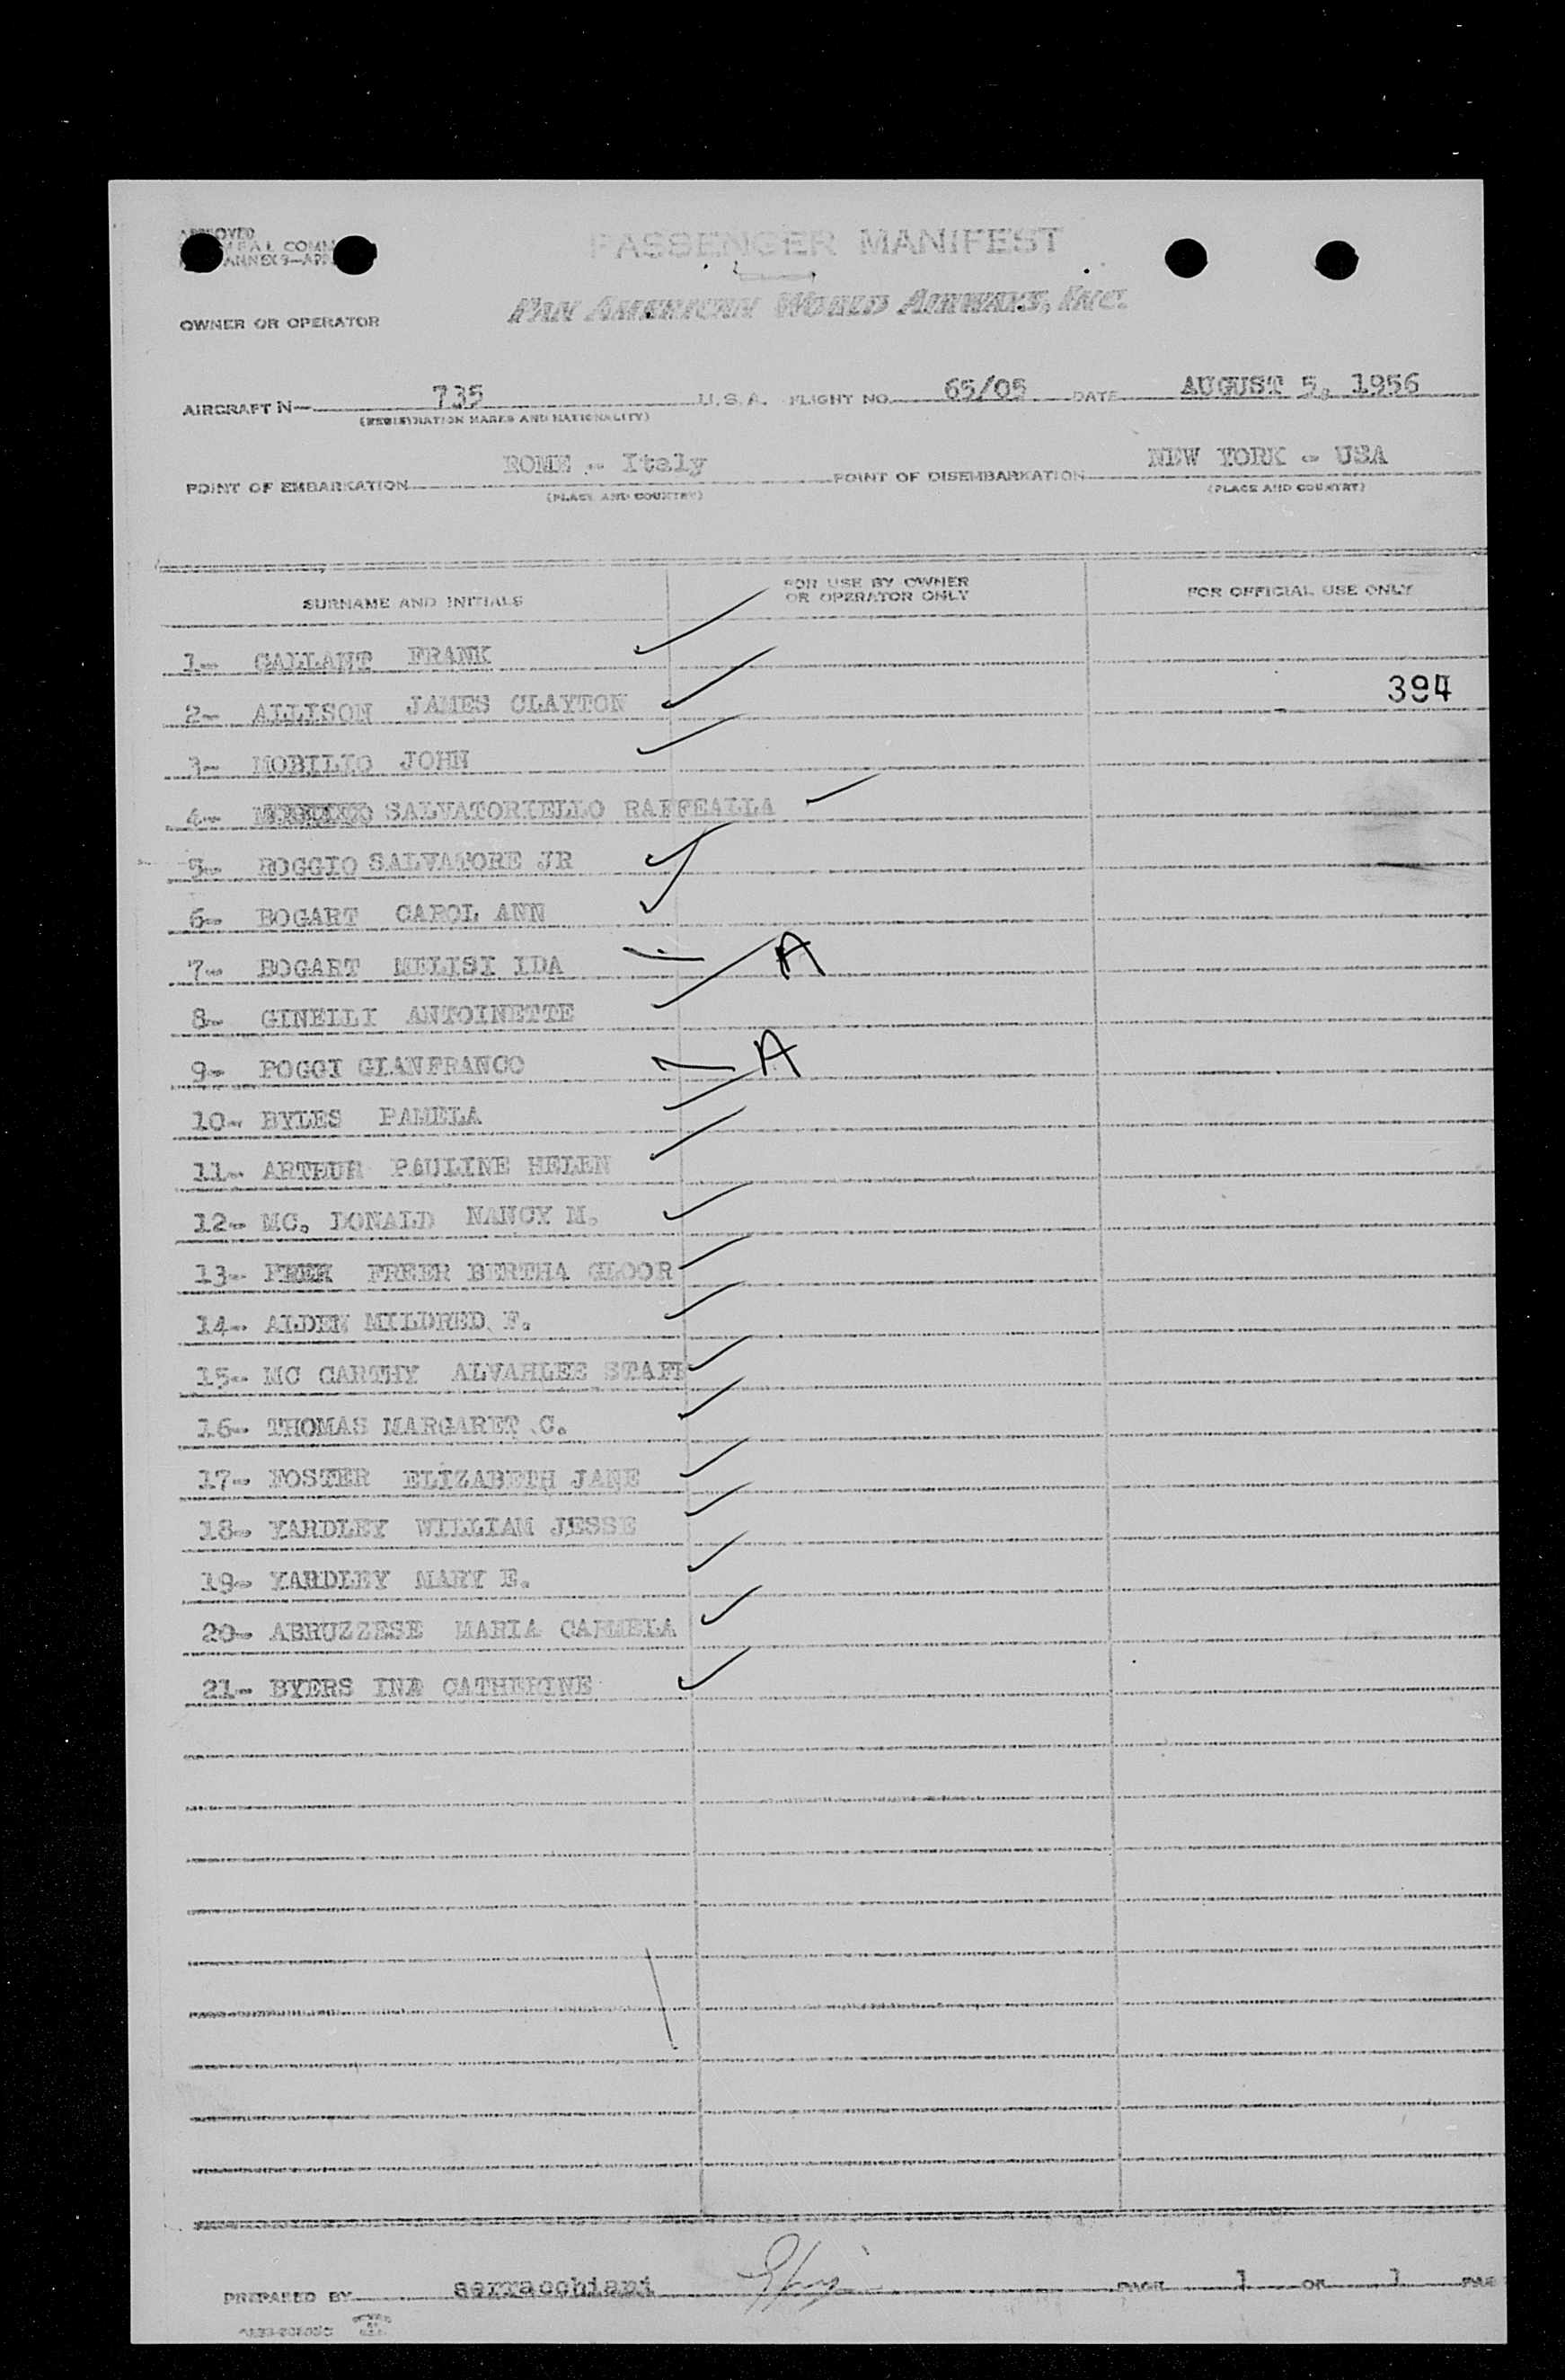 APPROVED
PASSENGER MANIFEST
PAN AMERICAN WORLD AIRWAYS, INC.
OWNER OR OPERATOR
AIRCRAFT N— 735 U. S. A. FLIGHT NO. 65/05 DATE AUGUST 5, 1956
(REGISTRATION MARKS AND NATIONALITY)
POINT OF EMBARKATION ROME - Italy POINT OF DISEMBARKATION NEW YORK - USA
(PLACE AND COUNTRY) (PLACE AND COUNTRY)
SURNAME AND INITIALS FOR USE BY OWNER OR OPERATOR ONLY FOR OFFICIAL USE ONLY
1- GALLANT FRANK
2- ALLISON JAMES CLAYTON 394
3- MOBILIO JOHN
4- SALVATORIELLO RAFFEALLA
5- ROGGIO SALVATORE JR
6- BOGART CAROL ANN
7- BOGART MELISI IDA A
8- GINELLI ANTOINETTE
9- POGGI GIANFRANCO A
10- BYLES PAMELA
11- ARTHUR PAULINE HELEN
12- MC. DONALD NANCY M.
13- FREER BERTHA GLOOR
14- ALDEN MILDRED F.
15- MC CARTHY ALVAHLEE STAFF
16- THOMAS MARGARET C.
17- FOSTER ELIZABETH JANE
18- YARDLEY WILLIAM JESSE
19- YARDLEY MARY E.
20- ABRUZZESE MARIA CARMELA
21- BYERS INA CATHERINE
PREPARED BY serracchiani PAGE 1 OF 1